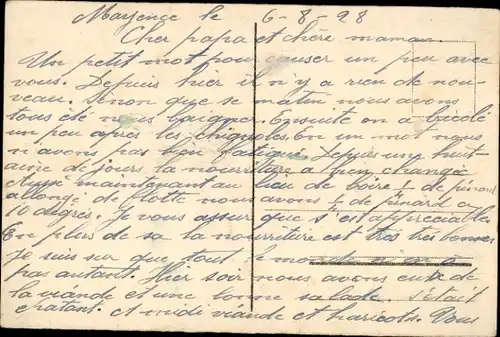 Mayence le 6-8-28
Cher papa et chère maman.
Un petit mot pour causer un peu avec
vous. Depuis hier il n'y a rien de nou-
veau. Sinon que se matin nous avons
tous été nous baigner. Ensuite on a bricolé
un peu après les chignoles. En un mot nous
n avons pas bien fatigué. Depuis une huit-
aine de jours la nourriture a bien changée
Aussi maintenant au lieu de boire ¼ de pinard
allongé de flotte nous avons ¼ de pinard a
10 degrés. Je vous assur que s'est appreciable.
En plus de sa la nourriture est très très bonne.
Je suis sur que tout le monde n'en a
pas autant. Hier soir nous avons eux de
la viande et une bonne salade. S'était
épatant. A midi viande et haricots. Vous